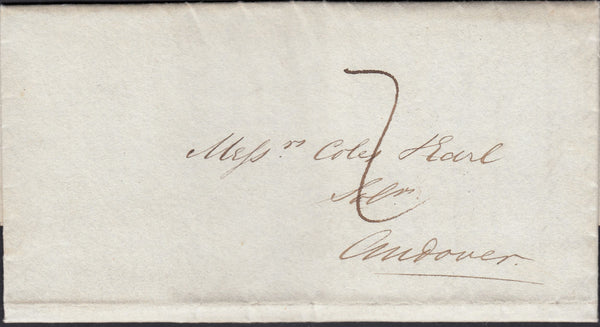 Messrs Coles Earl
Solrs
Andover.
7